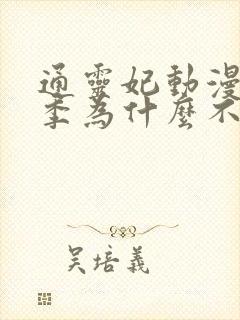 通靈妃動漫
季為什麼不
吳培義